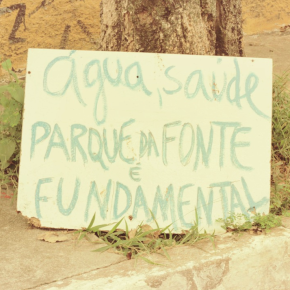 água, saúde
PARQUE DA FONTE
É
FUNDAMENTAL